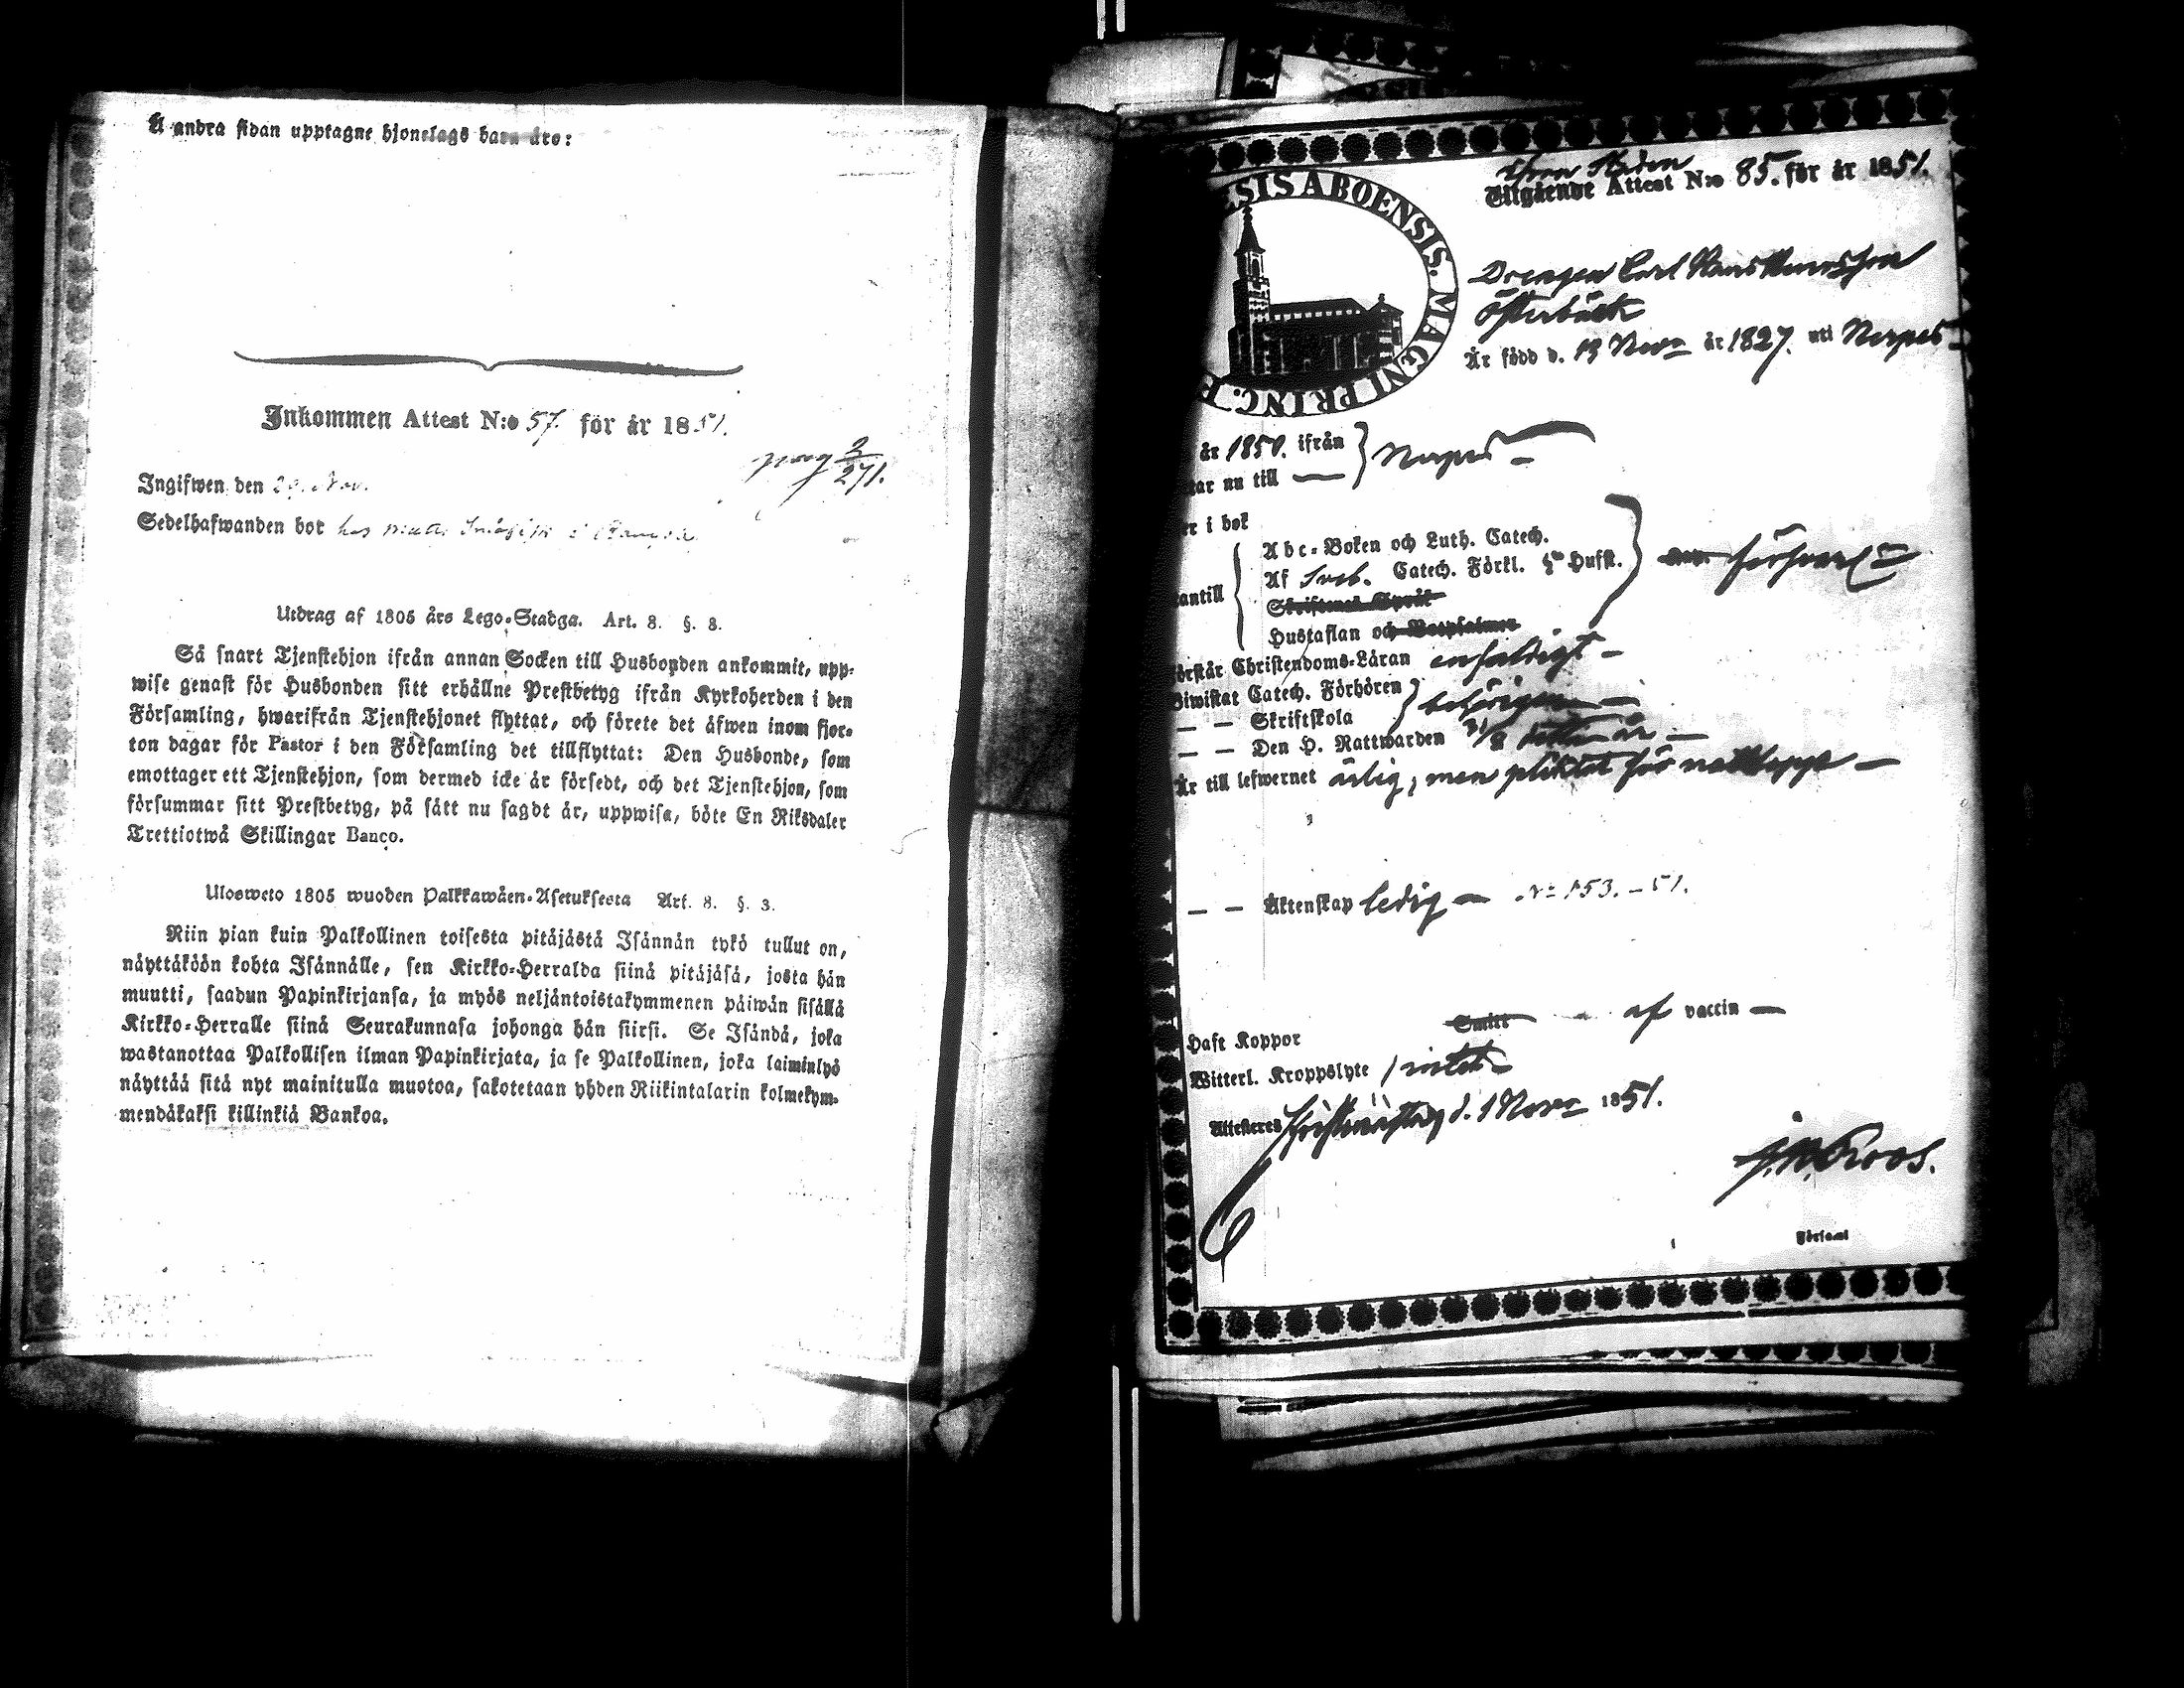 Å andra sidan upptagne hjonelags barn äro:
Inkommen Attest N:o 57. för år 1851.
pag 3/271.
Ingifwen den 29. Nov.
Sedelhafwanden bor hos
Utdrag af 1805 års Lego-Stadga. Art. 8. §. 3.
Så snart Tjenstehjon ifrån annan Socken till Husbonden ankommit, upp-
wise genast för Husbonden sitt erhållne Prestbetyg ifrån Kyrkoherden i den
Församling, hwarifrån Tjenstehjonet flyttat, och förete det äfwen inom fjor-
ton dagar för Pastor i den Församling det tillflyttat: Den Husbonde, som
emottager ett Tjenstehjon, som dermed icke är försedt, och det Tjenstehjon, som
försummar sitt Prestbetyg, på sätt nu sagdt är, uppwisa, böte En Riksdaler
Trettiotwå Skillingar Banco.
Ulosweto 1805 wuoden Palkkawäen-Asetuksesta Art. 8. §. 3.
Niin pian kuin Palkollinen toisesta pitäjästä Isännän tykö tullut on,
näyttäköön kohta Isännälle, sen Kirkko-Herralda siinä pitäjäsä, josta hän
muutti, saadun Papinkirjansa, ja myös neljäntoistakymmenen päiwän sisällä
Kirkko-Herralle siinä Seurakunnasa johonga hän siirsi. Se Isändä, joka
wastanottaa Palkollisen ilman Papinkirjata, ja se Palkollinen, joka laiminlyö
näyttää sitä nyt mainitulla muotoa, sakotetaan yhden Riikintalarin kolmekym-
mendäkaksi killinkiä Bankoa.
SIS ABOENSIS. MAGNI PRINC. F
Utgående Attest N:o 85. för år 1851.
Drengen Carl Hans
Österbäck
Är född d. 13 Nov. år 1827. uti Nerpes
år 1850. ifrån
tar nu till — } Nerpes —
er i bok
Abc-Boken och Luth. Catech.
Af Sveb. Catech. Förkl. Husst.
antill
Skriftenes Språk
Hustaflan och Botpsalmer
försvarl.
örstår Christendoms-Läran enfaldigt —
Biwistat Catech. Förhören
— — Skriftskola } behörigen —
— — Den H. Nattwarden 31/8 detta år —
Är till lefwernet ärlig, men pliktat för nattlopp —
— — Äktenskap ledig — No 153. – 51.
Haft Koppor Smitt af vaccin —
Witterl. Kroppslyte intet —
Attesteras d. 1 Nov. 1851.
Roos.
Församl